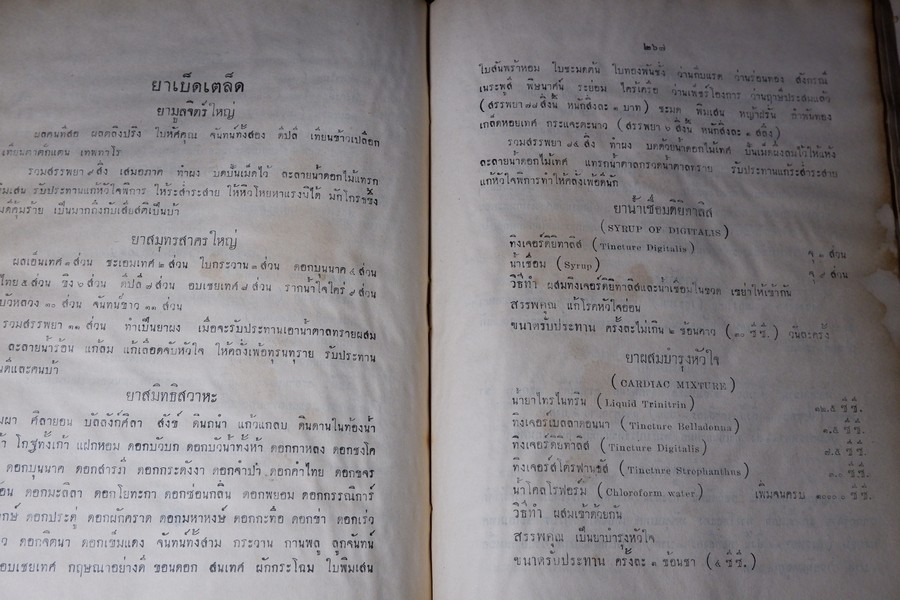 ยาเบ็ดเตล็ด
ยามูลจิตร์ใหญ่
ผลคนทีสอ ผลตลิงปริง ใบหัศคุณ จันทน์ทั้งสอง ดีปลี เทียนข้าวเปลือก
เทียนตาตั๊กแตน เทพทาโร
รวมสรรพยา ๙ สิ่ง เสมอภาค ทำผง บดปั้นเม็ดไว้ ละลายน้ำดอกไม้แทรก
พิมเสน รับประทานแก้หัวใจพิการ ให้ระส่ำระสาย ให้หิวโหยหาแรงมิได้ มักโกรธขึ้ง
คุ้มดีคุ้มร้าย เป็นมากถึงกับเสียสติเป็นบ้า
ยาสมุทรสาครใหญ่
ผลเอ็นเทศ ๑ ส่วน ชะเอมเทศ ๒ ส่วน ใบกระวาน ๓ ส่วน ดอกบุนนาค ๔ ส่วน
ไทย ๕ ส่วน ขิง ๖ ส่วน ดีปลี ๗ ส่วน อบเชยเทศ ๘ ส่วน รากน้ำใจใคร่ ๙ ส่วน
บัวหลวง ๑๐ ส่วน จันทน์ขาว ๑๑ ส่วน
รวมสรรพยา ๑๑ ส่วน ทำเป็นยาผง เมื่อจะรับประทานเอาน้ำตาลทรายผสม
ละลายน้ำร้อน แก้ลม แก้เลือดจับหัวใจ ให้คลั่งเพ้อทุรนทุราย รับประทาน
แลคนบ้า
ยาสมิทธิสวาหะ
ศีลายอน บัลลังก์ศิลา สังข์ ดินถนำ แก้วแกลบ ดินดานในท้องน้ำ
โกฐทั้งเก้า แฝกหอม ดอกบัวบก ดอกบัวน้ำทั้งห้า ดอกกาหลง ดอกชงโค
ดอกบุนนาค ดอกสารภี ดอกกระดังงา ดอกจำปา ดอกคำไทย ดอกขจร
ดอกมะลิลา ดอกโยทะกา ดอกซ่อนกลิ่น ดอกพยอม ดอกกรรณิการ์
ดอกประดู่ ดอกผักคราด ดอกมหาหงษ์ ดอกกะทือ ดอกข่า ดอกเร่ว
ดอกจิตนา ดอกเข็มแดง จันทน์ทั้งสาม กระวาน กานพลู ลูกจันทน์
อบเชยเทศ กฤษณาอย่างดี ขอนดอก สนเทศ ผักกระโฉม ใบพิมเสน
๒๖๗
ใบสันพร้าหอม ใบชะมดต้น ใบทองพันชั่ง ว่านกีบแรด ว่านร่อนทอง สังกรณี
เนระพูสี พิษนาศน์ ระย่อม ไคร้เครือ ว่านเพ็ชร์ใองการ ว่านฤาษีประสมแล้ว
(สรรพยา ๗๘ สิ่งนี้ หนักสิ่งละ ๑ บาท) ชะมด พิมเสน หญ้าฝรั่น อำพันทอง
เกล็ดหอยเทศ กระแจะตะนาว (สรรพยา ๖ สิ่งนี้ หนักสิ่งละ ๑ สลึง)
รวมสรรพยา ๘๔ สิ่ง ทำผง บดด้วยน้ำดอกไม้เทศ ปั้นเม็ดผึ่งลมไว้ให้แห้ง
ละลายน้ำดอกไม้เทศ แทรกน้ำตาลกรวดน้ำตาลทราย รับประทานแก้ระส่ำระสาย
แก้หัวใจพิการทำให้คลั่งเพ้อดีนัก
ยาน้ำเชื่อมดิยิตาลิส
(SYRUP OF DIGITALIS)
ทิงเจอร์ดิยิทาลิส (Tincture Digitalis) จุ ๑ ส่วน
น้ำเชื่อม (Syrup) จุ ๙ ส่วน
วิธีทำ ผสมทิงเจอร์ดิยิทาลิสและน้ำเชื่อมในขวด เขย่าให้เข้ากัน
สรรพคุณ แก้โรคหัวใจอ่อน
ขนาดรับประทาน ครั้งละไม่เกิน ๒ ช้อนคาว (๓๐ ซี.ซี.) วันละครั้ง
ยาผสมบำรุงหัวใจ
(CARDIAC MIXTURE)
น้ำยาไทรไนทริน (Liquid Trinitrin) ๑๒.๕ ซี.ซี.
ทิงเจอร์เบลลาดอนนา (Tincture Belladonna) ๑.๕ ซี.ซี.
ทิงเจอร์ดิยิทาลิส (Tincture Digitalis) ๗.๕ ซี.ซี.
ทิงเจอร์สโตรฟานธัส (Tincture Strophanthus) ซี.ซี.
น้ำโคลโรฟอร์ม (Chloroform water) เพิ่มจนครบ ๑๐๐๐.๐ ซี.ซี.
วิธีทำ ผสมเข้าด้วยกัน
สรรพคุณ เป็นยาบำรุงหัวใจ
ขนาดรับประทาน ครั้งละ ๑ ช้อนชา (๔ ซี.ซี.)